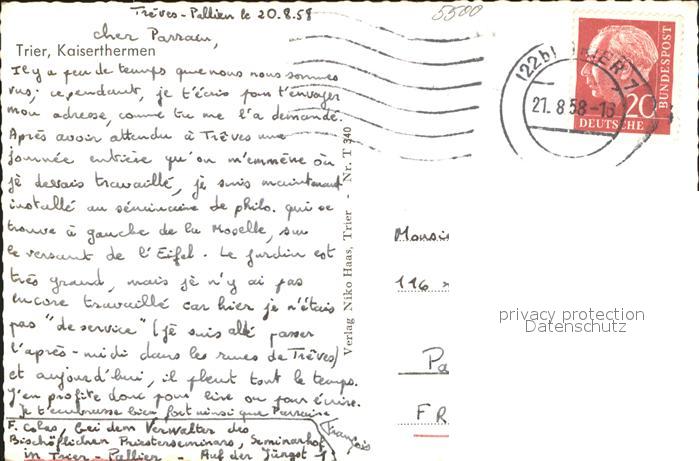 Trêves-Pallien le 20.8.58
5500
cher Parrain,
Trier, Kaiserthermen
Il y a peu de temps que nous nous sommes
vus; cependant, je t'écris pour t'envoyer
mon adresse, comme tu me l'a demandé.
Après avoir attendu à Trêves une
journée entière qu'on m'emmène où
je devais travaillé, je suis maintenant
installé au séminaire de philo. qui se
trouve à gauche de la Moselle, sur
le versant de l'Eifel. Le jardin est
très grand, mais je n'y ai pas
encore travaillé car hier je n'étais
pas "de service" (je suis allé passer
l'après-midi dans les rues de Trêves)
et aujourd'hui, il pleut tout le temps.
J'en profite donc pour lire ou pour écrire.
Je t'embrasse bien fort ainsi que Parraine.
François
F. Colas, bei dem Verwalter des
Bischöflichen Priesterseminars, Seminarhof
in Trier-Pallien - Auf der Jüngst 1
Verlag Niko Haas, Trier - Nr. T 340
(22b) TRIER 1
21.8.58-16
20
DEUTSCHE
BUNDESPOST
Monsi
116
Pa
FR
privacy protection
Datenschutz